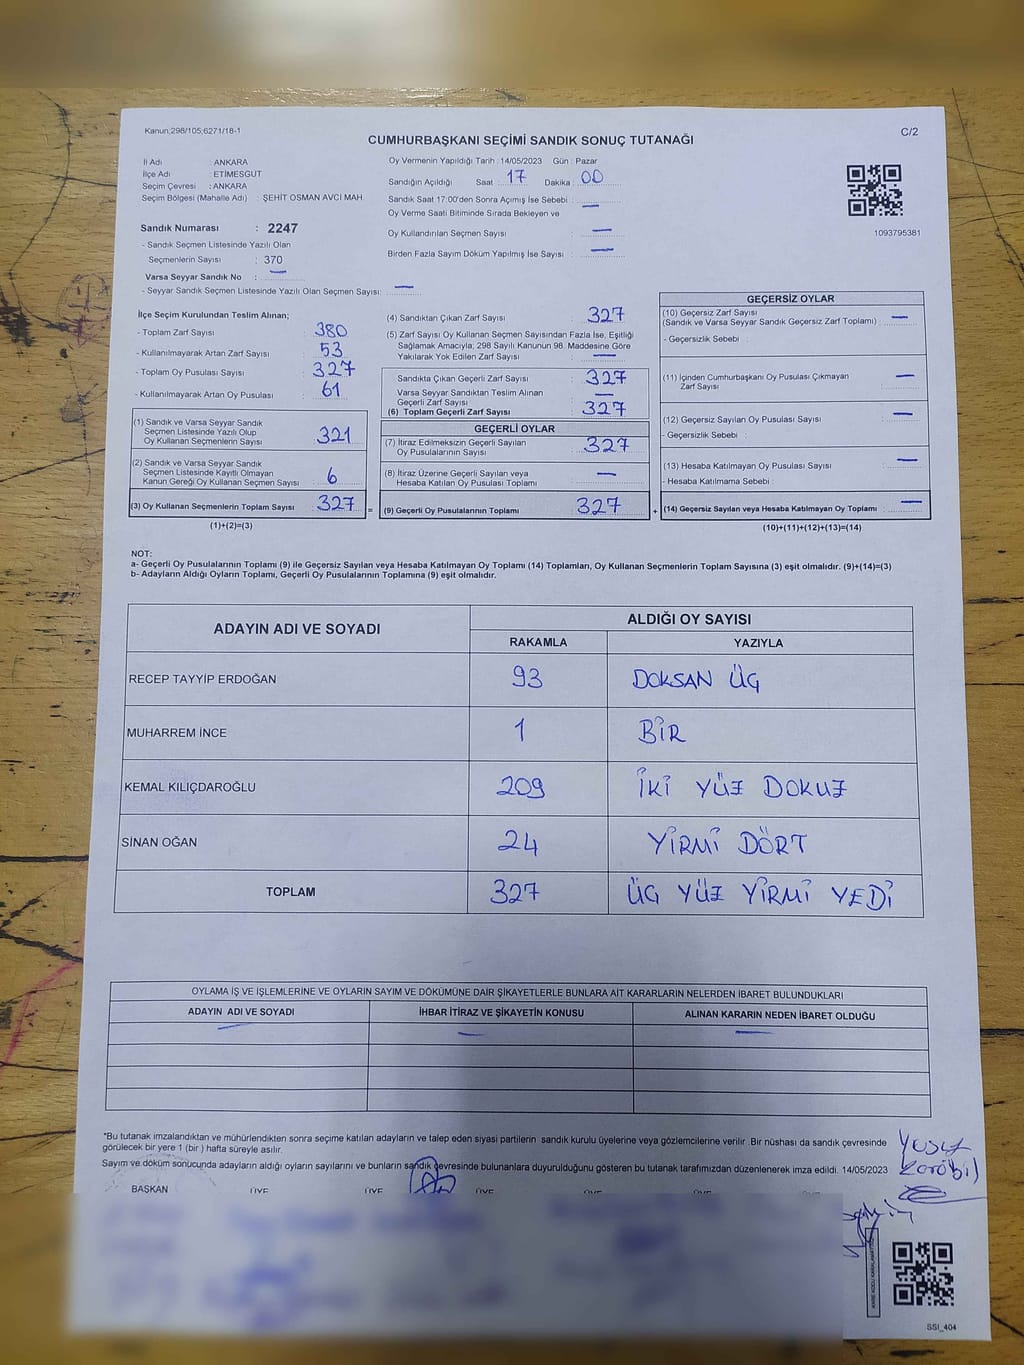 Kanun;298/105;6271/18-1
CUMHURBAŞKANI SEÇİMİ SANDIK SONUÇ TUTANAĞI
C/2
İl Adı : ANKARA
İlçe Adı : ETİMESGUT
Seçim Çevresi : ANKARA
Seçim Bölgesi (Mahalle Adı) : ŞEHİT OSMAN AVCI MAH.
Sandık Numarası : 2247
- Sandık Seçmen Listesinde Yazılı Olan
Seçmenlerin Sayısı : 370
Varsa Seyyar Sandık No : —
- Seyyar Sandık Seçmen Listesinde Yazılı Olan Seçmen Sayısı: —
Oy Vermenin Yapıldığı Tarih : 14/05/2023 Gün : Pazar
Sandığın Açıldığı Saat : 17 Dakika : 00
Sandık Saat 17:00'den Sonra Açımış İse Sebebi : —
Oy Verme Saati Bitiminde Sırada Bekleyen ve
Oy Kullandırılan Seçmen Sayısı : —
Birden Fazla Sayım Döküm Yapılmış İse Sayısı : —
1093795381
İlçe Seçim Kurulundan Teslim Alınan;
- Toplam Zarf Sayısı : 380
- Kullanılmayarak Artan Zarf Sayısı : 53
- Toplam Oy Pusulası Sayısı : 327
- Kullanılmayarak Artan Oy Pusulası : 61
(1) Sandık ve Varsa Seyyar Sandık
Seçmen Listesinde Yazılı Olup
Oy Kullanan Seçmenlerin Sayısı : 321
(2) Sandık ve Varsa Seyyar Sandık
Seçmen Listesinde Kayıtlı Olmayan
Kanun Gereği Oy Kullanan Seçmen Sayısı : 6
(3) Oy Kullanan Seçmenlerin Toplam Sayısı : 327 =
(1)+(2)=(3)
(4) Sandıktan Çıkan Zarf Sayısı : 327
(5) Zarf Sayısı Oy Kullanan Seçmen Sayısından Fazla İse, Eşitliği
Sağlamak Amacıyla; 298 Sayılı Kanunun 98. Maddesine Göre
Yakılarak Yok Edilen Zarf Sayısı : —
Sandıkta Çıkan Geçerli Zarf Sayısı : 327
Varsa Seyyar Sandıktan Teslim Alınan
Geçerli Zarf Sayısı : —
(6) Toplam Geçerli Zarf Sayısı : 327
GEÇERLİ OYLAR
(7) İtiraz Edilmeksizin Geçerli Sayılan
Oy Pusulalarının Sayısı : 327
(8) İtiraz Üzerine Geçerli Sayılan veya
Hesaba Katılan Oy Pusulası Toplamı : —
(9) Geçerli Oy Pusulalarının Toplamı : 327 +
GEÇERSİZ OYLAR
(10) Geçersiz Zarf Sayısı : —
(Sandık ve Varsa Seyyar Sandık Geçersiz Zarf Toplamı)
- Geçersizlik Sebebi :
(11) İçinden Cumhurbaşkanı Oy Pusulası Çıkmayan
Zarf Sayısı : —
(12) Geçersiz Sayılan Oy Pusulası Sayısı : —
- Geçersizlik Sebebi :
(13) Hesaba Katılmayan Oy Pusulası Sayısı : —
- Hesaba Katılmama Sebebi :
(14) Geçersiz Sayılan veya Hesaba Katılmayan Oy Toplamı : —
(10)+(11)+(12)+(13)=(14)
NOT:
a- Geçerli Oy Pusulalarının Toplamı (9) ile Geçersiz Sayılan veya Hesaba Katılmayan Oy Toplamı (14) Toplamları, Oy Kullanan Seçmenlerin Toplam Sayısına (3) eşit olmalıdır. (9)+(14)=(3)
b- Adayların Aldığı Oyların Toplamı, Geçerli Oy Pusulalarının Toplamına (9) eşit olmalıdır.
ADAYIN ADI VE SOYADI
ALDIĞI OY SAYISI
RAKAMLA YAZIYLA
RECEP TAYYİP ERDOĞAN 93 DOKSAN ÜÇ
MUHARREM İNCE 1 BİR
KEMAL KILIÇDAROĞLU 209 İKİ YÜZ DOKUZ
SİNAN OĞAN 24 YİRMİ DÖRT
TOPLAM 327 ÜÇ YÜZ YİRMİ YEDİ
OYLAMA İŞ VE İŞLEMLERİNE VE OYLARIN SAYIM VE DÖKÜMÜNE DAİR ŞİKAYETLERLE BUNLARA AİT KARARLARIN NELERDEN İBARET BULUNDUKLARI
ADAYIN ADI VE SOYADI İHBAR İTİRAZ VE ŞİKAYETİN KONUSU ALINAN KARARIN NEDEN İBARET OLDUĞU
— — —
*Bu tutanak imzalandıktan ve mühürlendikten sonra seçime katılan adayların ve talep eden siyasi partilerin sandık kurulu üyelerine veya gözlemcilerine verilir. Bir nüshası da sandık çevresinde
görülecek bir yere 1 (bir ) hafta süreyle asılır.
Sayım ve döküm sonucunda adayların aldığı oyların sayılarını ve bunların sandık çevresinde bulunanlara duyurulduğunu gösteren bu tutanak tarafımızdan düzenlenerek imza edildi. 14/05/2023
BAŞKAN ÜYE ÜYE ÜYE ÜYE ÜYE ÜYE
Yusuf
SSI_404